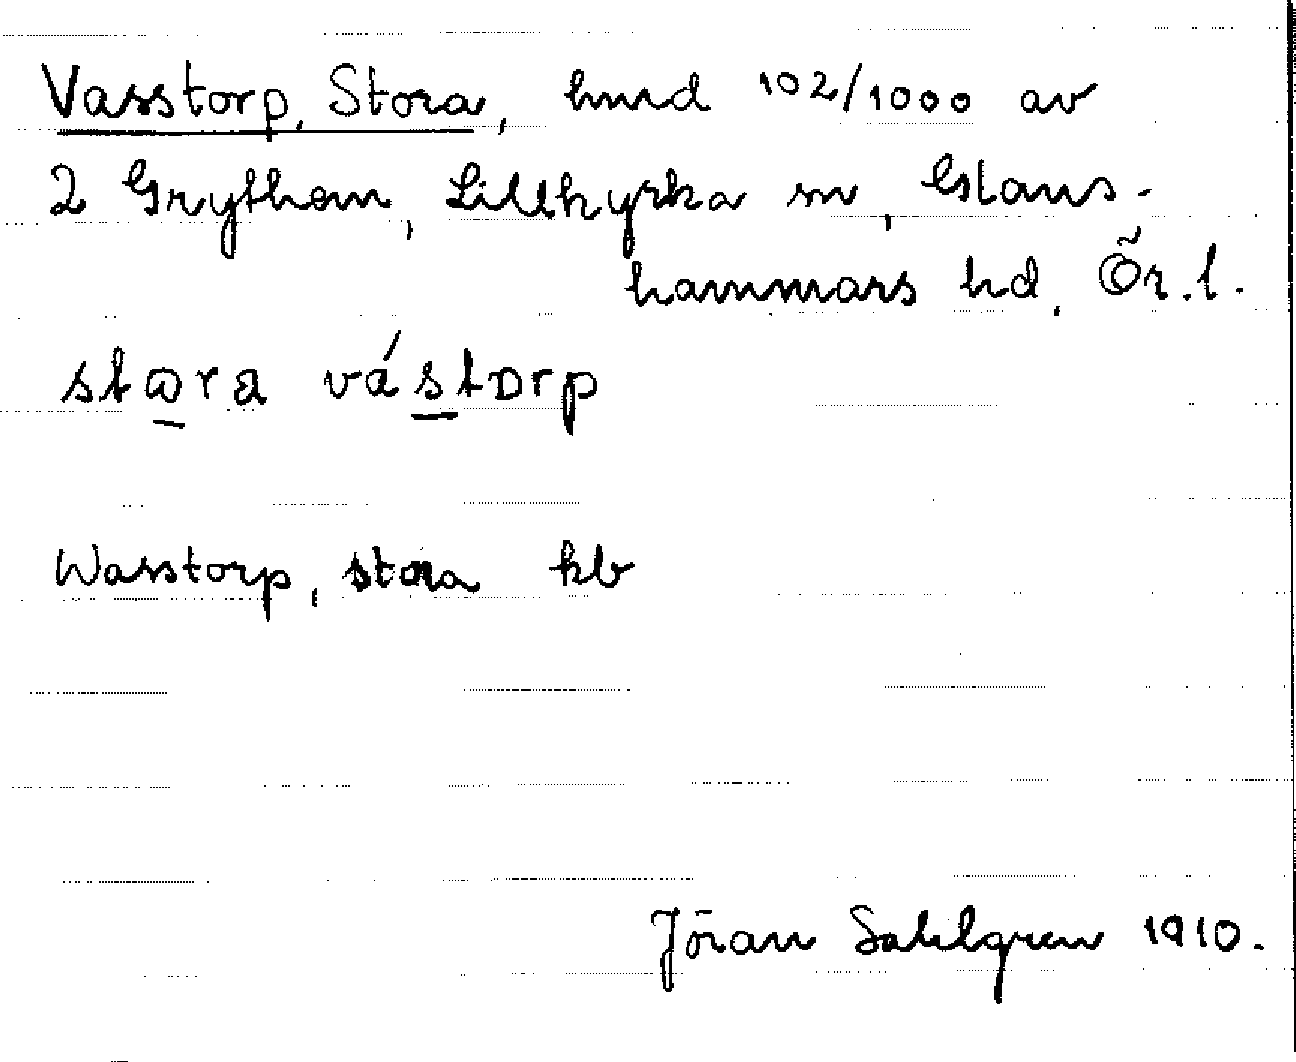 Vasstorp, Stora, hmd 102/1000 av
2 Grythem, Lillkyrka sn, Glans-
hammars hd, Ör. l.
stora vástorp
Wasstorp, stora kb
Jöran Sahlgren 1910.